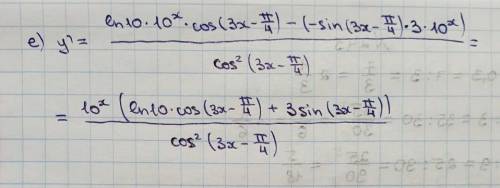 e) y' = (ln10·10ˣ·cos(3x-π/4) - (-sin(3x-π/4)·3·10ˣ))/(cos²(3x-π/4)) =
= (10ˣ(ln10·cos(3x-π/4) + 3sin(3x-π/4)))/(cos²(3x-π/4))